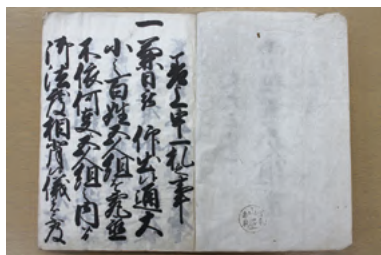 差上申一札事
一兼日被 仰出候通大
小之百姓五人組を究置
不依何事五人組之内ニ而
御法度相背候儀ハ不及